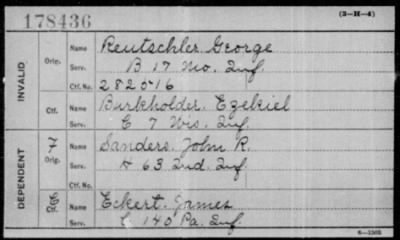 178436
(3-H-4)
INVALID
Orig.
Name Reutschler, George
Serv. B 17 Mo. Inf.
Ctf. No. 282516
Ctf.
Name Birkholder, Ezekiel
Serv. C 7 Wis. Inf.
DEPENDENT
7
Orig.
Name Sanders, John R.
Serv. H 63 Ind. Inf.
Ctf. No.
Ctf.
Name Eckert, James
Serv. C 140 Pa. Inf.